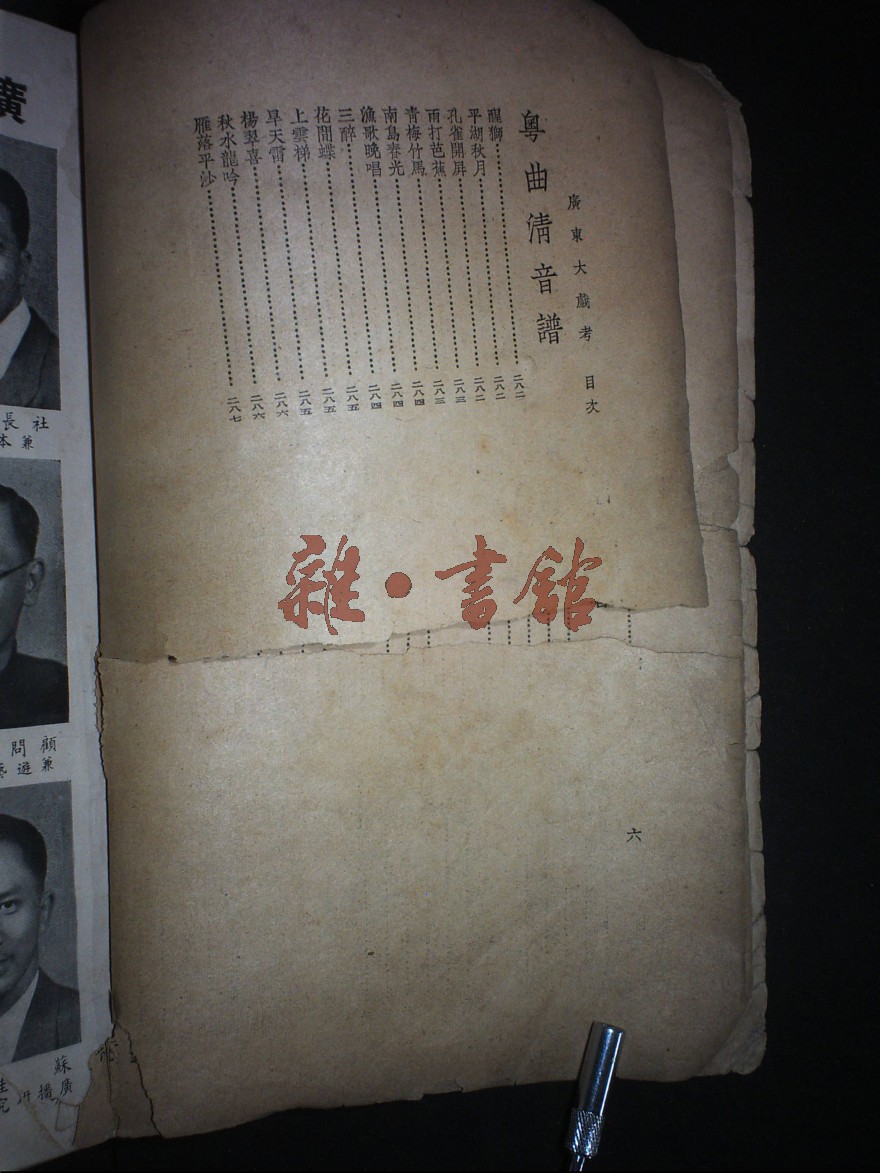 廣東大戲考 目次 六
粵曲清音譜
醒獅⋯⋯二八二
平湖秋月⋯⋯二八二
孔雀開屏⋯⋯二八二
雨打芭蕉⋯⋯二八三
青梅竹馬⋯⋯二八三
南島春光⋯⋯二八四
漁歌晚唱⋯⋯二八四
三醉⋯⋯二八四
花間蝶⋯⋯二八五
上雲梯⋯⋯二八五
旱天雷⋯⋯二八五
楊翠喜⋯⋯二八六
秋水龍吟⋯⋯二八六
雁落平沙⋯⋯二八七
雜•書館
廣
社長
兼本
顧問
兼遊
蘇
廣播